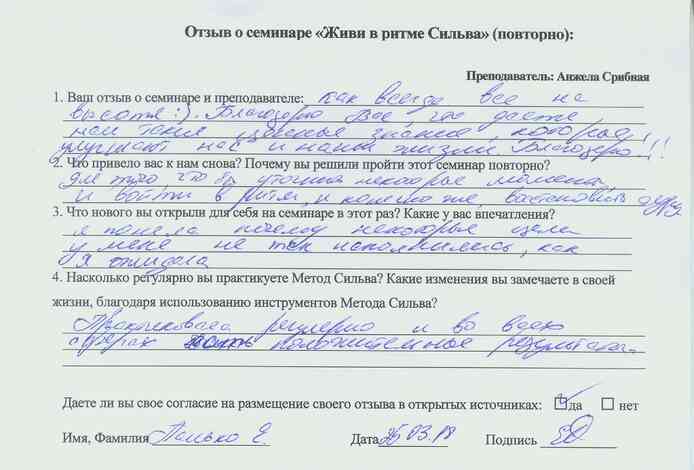 Отзыв о семинаре «Живи в ритме Сильва» (повторно):
Преподаватель: Анжела Срибная
1. Ваш отзыв о семинаре и преподавателе: как всегда все на
высоте :). Благодарю Вас, что даете
нам такие ценные знания, которые
улучшают нас и наши жизни. Благодарю!!!
2. Что привело вас к нам снова? Почему вы решили пройти этот семинар повторно?
для того что бы уточнить некоторые моменты
и войти в ритм, и конечно же, востановить
3. Что нового вы открыли для себя на семинаре в этот раз? Какие у вас впечатления?
я поняла почему некоторые цели
у меня не так исполнились, как
я ожидала
4. Насколько регулярно вы практикуете Метод Сильва? Какие изменения вы замечаете в своей
жизни, благодаря использованию инструментов Метода Сильва?
Практиковала регулярно и во всех
сферах есть положительные результаты.
Даете ли вы свое согласие на размещение своего отзыва в открытых источниках: да нет
Имя, Фамилия Е. Дата 25.03.18 Подпись